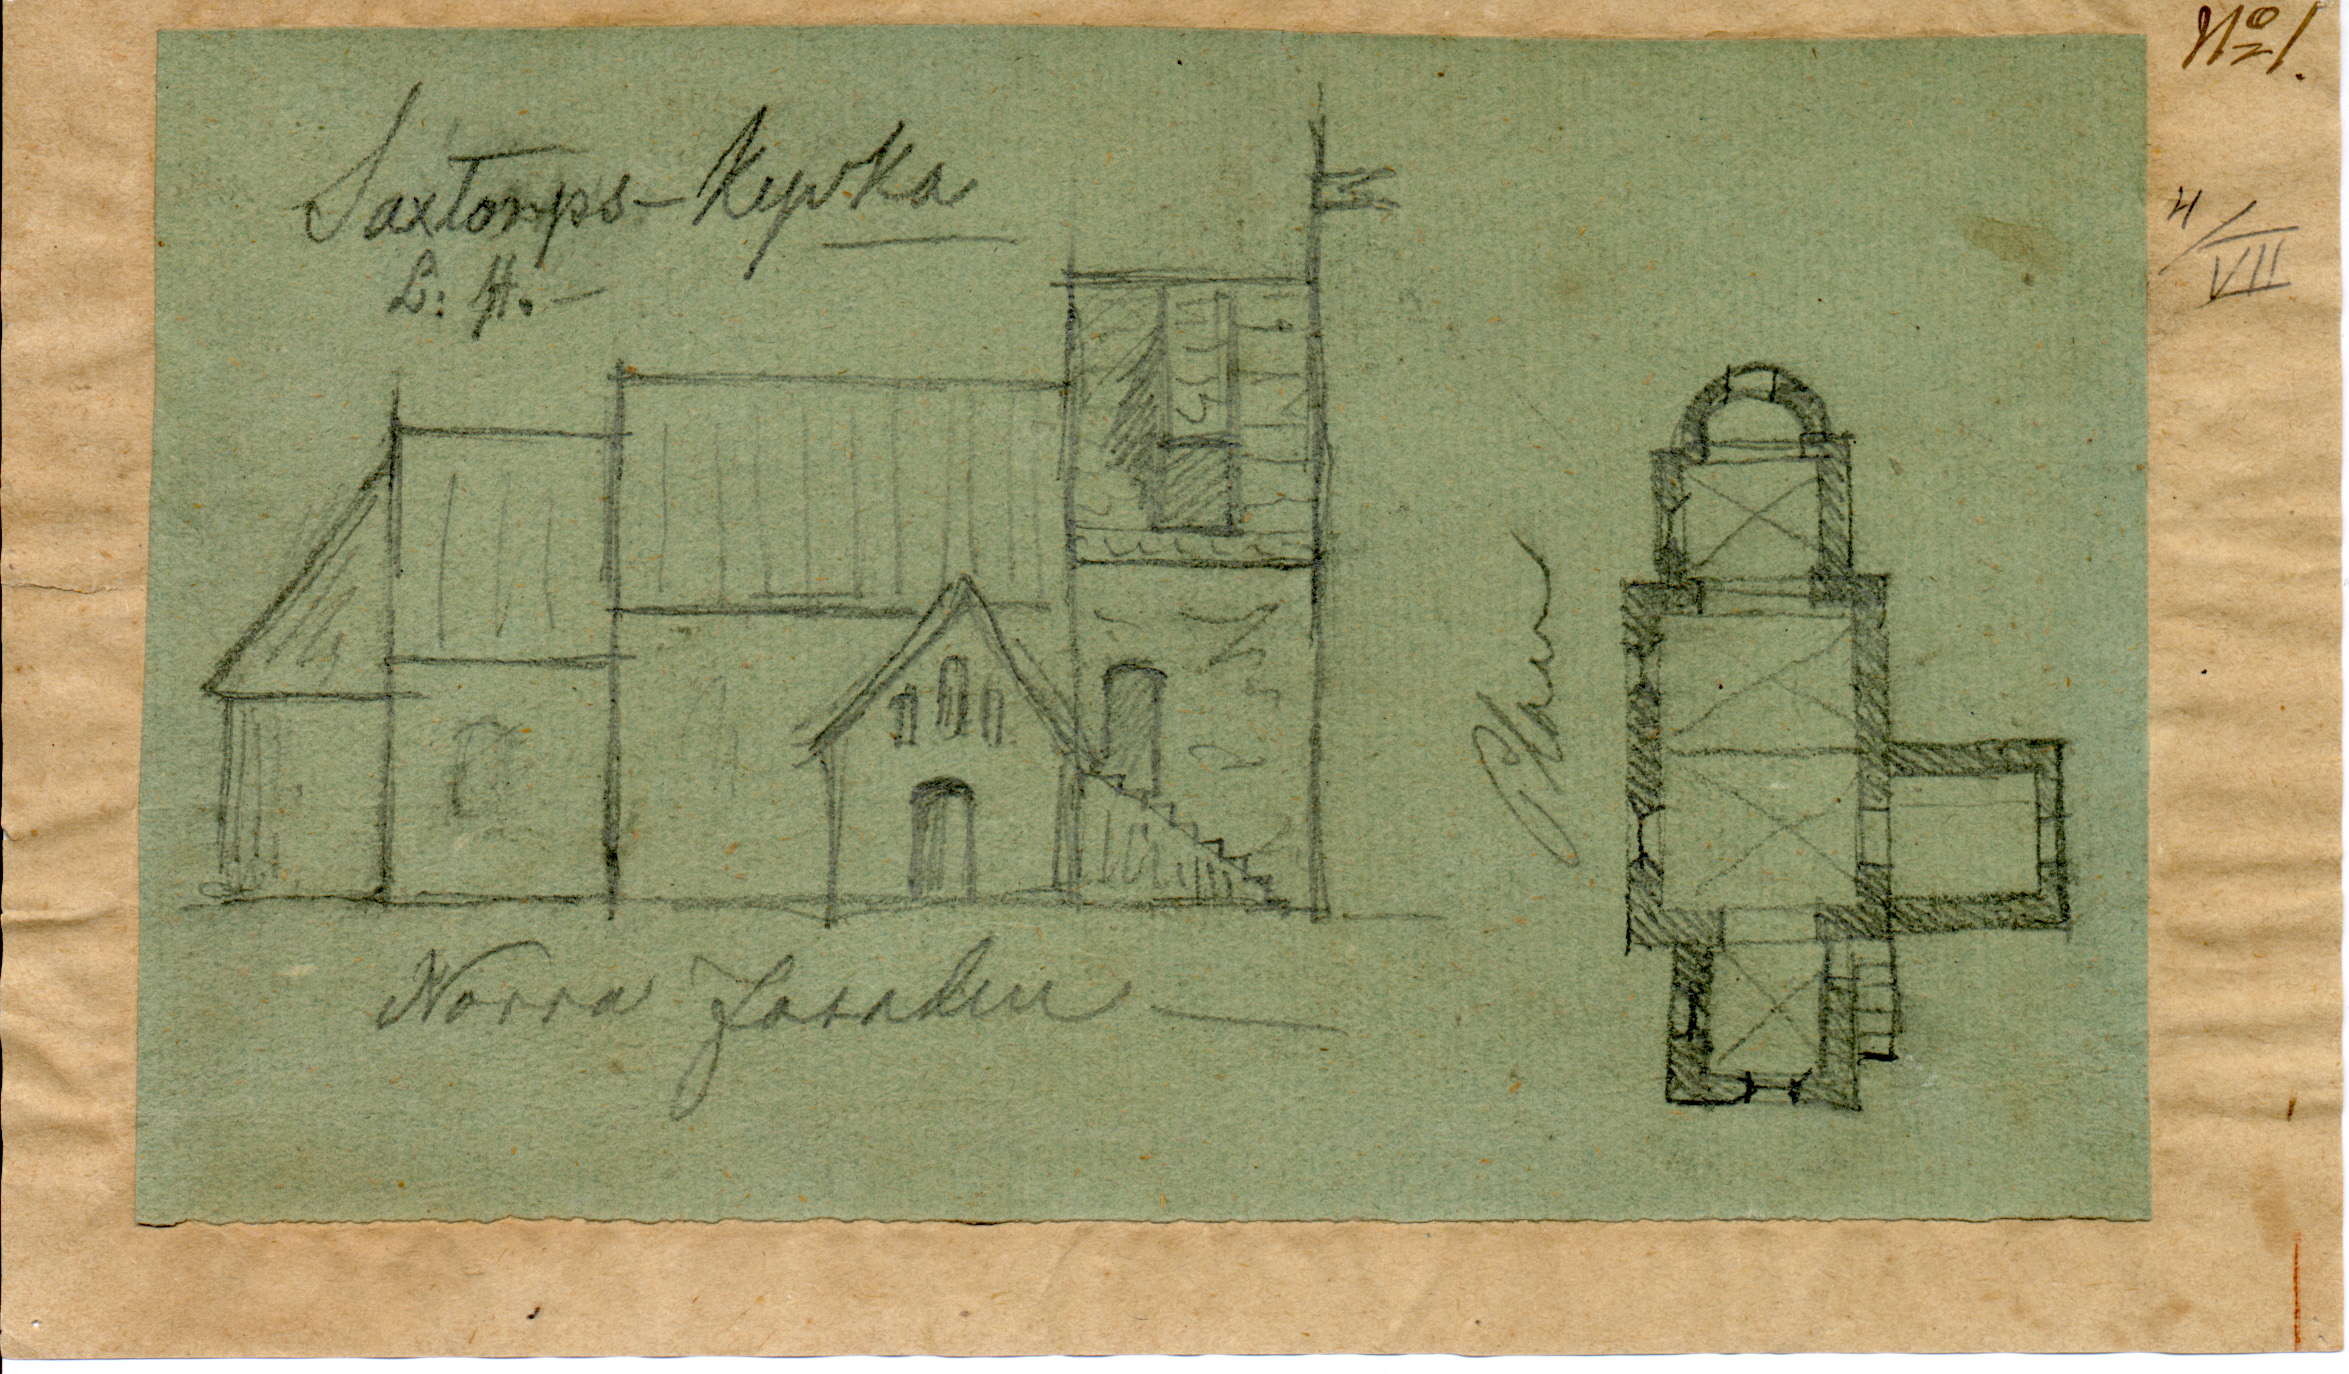 No 1.
4/VII
Saxtorps-Kyrka
L. H. —
Plan
Norra Fasaden